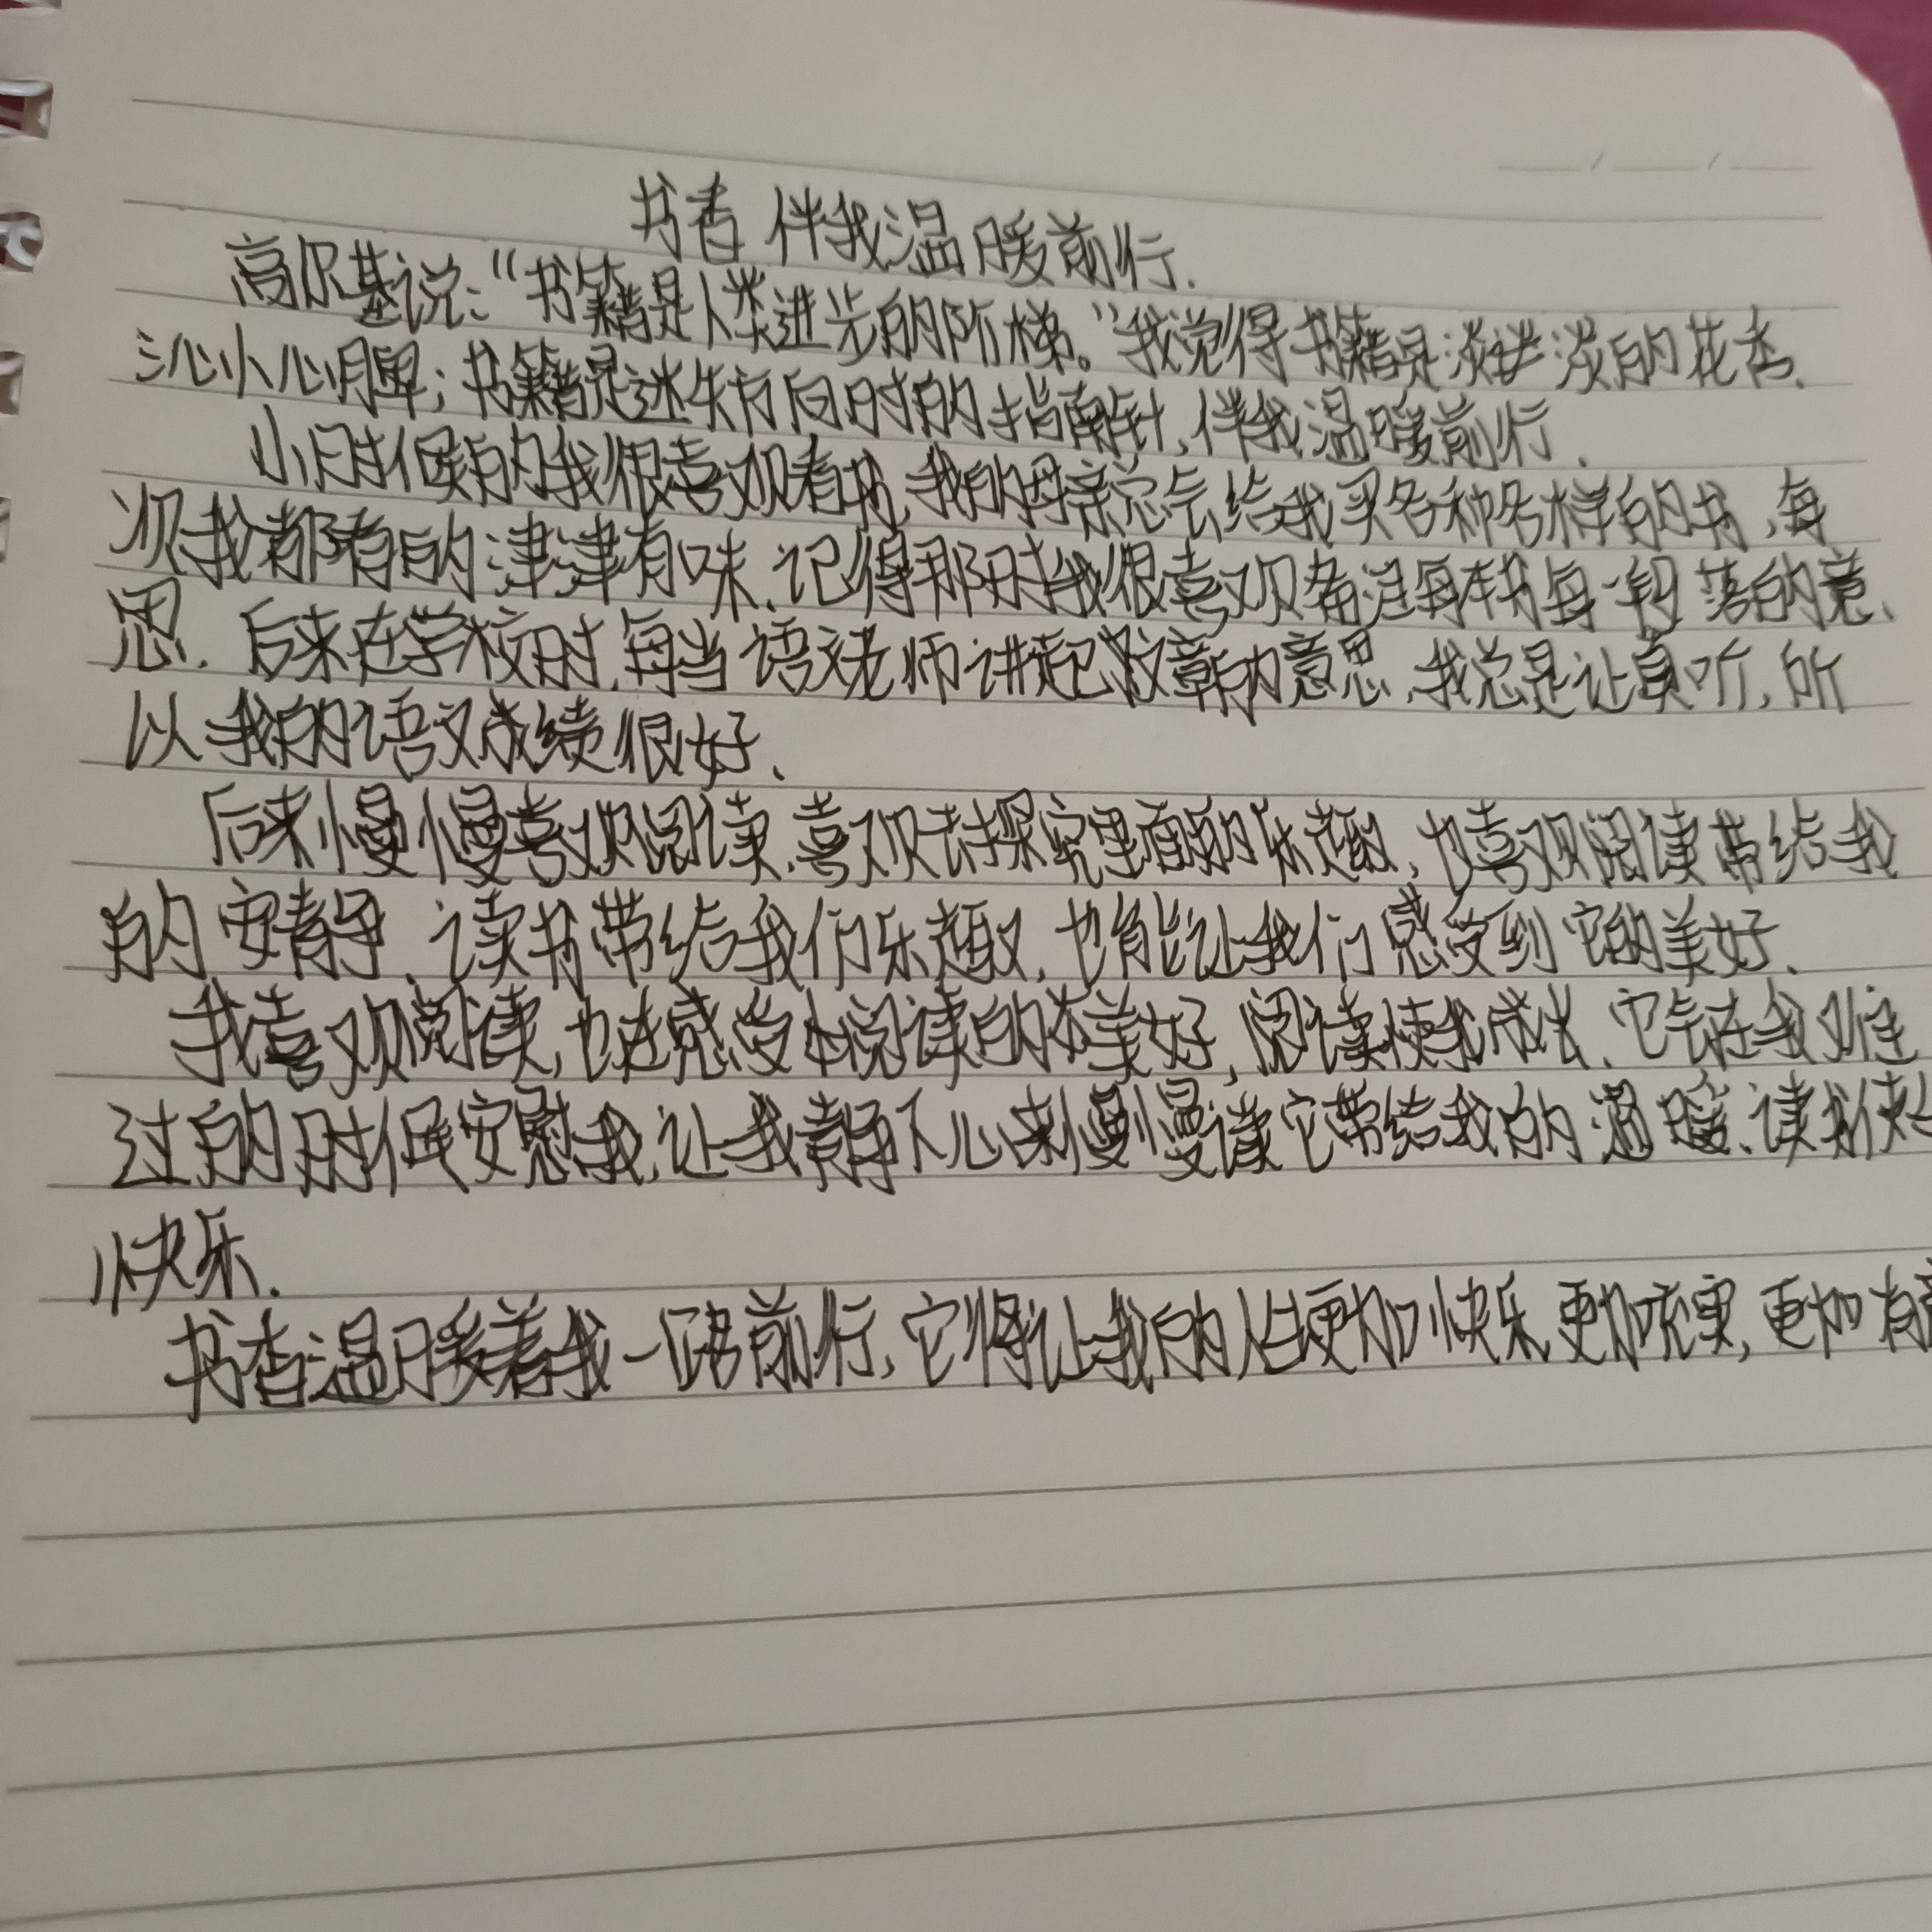 书香伴我温暖前行.
高尔基说:“书籍是人类进步的阶梯。”我觉得书籍是淡淡的花香.
沁心脾;书籍是迷失方向时的指南针,伴我温暖前行.
小时候的我很喜欢看书,我的母亲总会给我买各种各样的书,每
次我都看的津津有味.记得那时我很喜欢备注每本书每一段落的意
思.后来在学校时,每当语文老师讲起文章的意思,我总是认真听,所
以我的语文成绩很好.
后来慢慢喜欢阅读,喜欢去探究里面的乐趣,也喜欢阅读带给我
的安静.读书带给我们乐趣,也能让我们感受到它的美好.
我喜欢阅读,也在感受阅读的美好,阅读使我成长.它会在我难
过的时候安慰我,让我静下心来慢慢读它带给我的温暖.读书使
快乐.
书香温暖着我一路前行,它将让我的人生更加快乐,更加充实,更加有